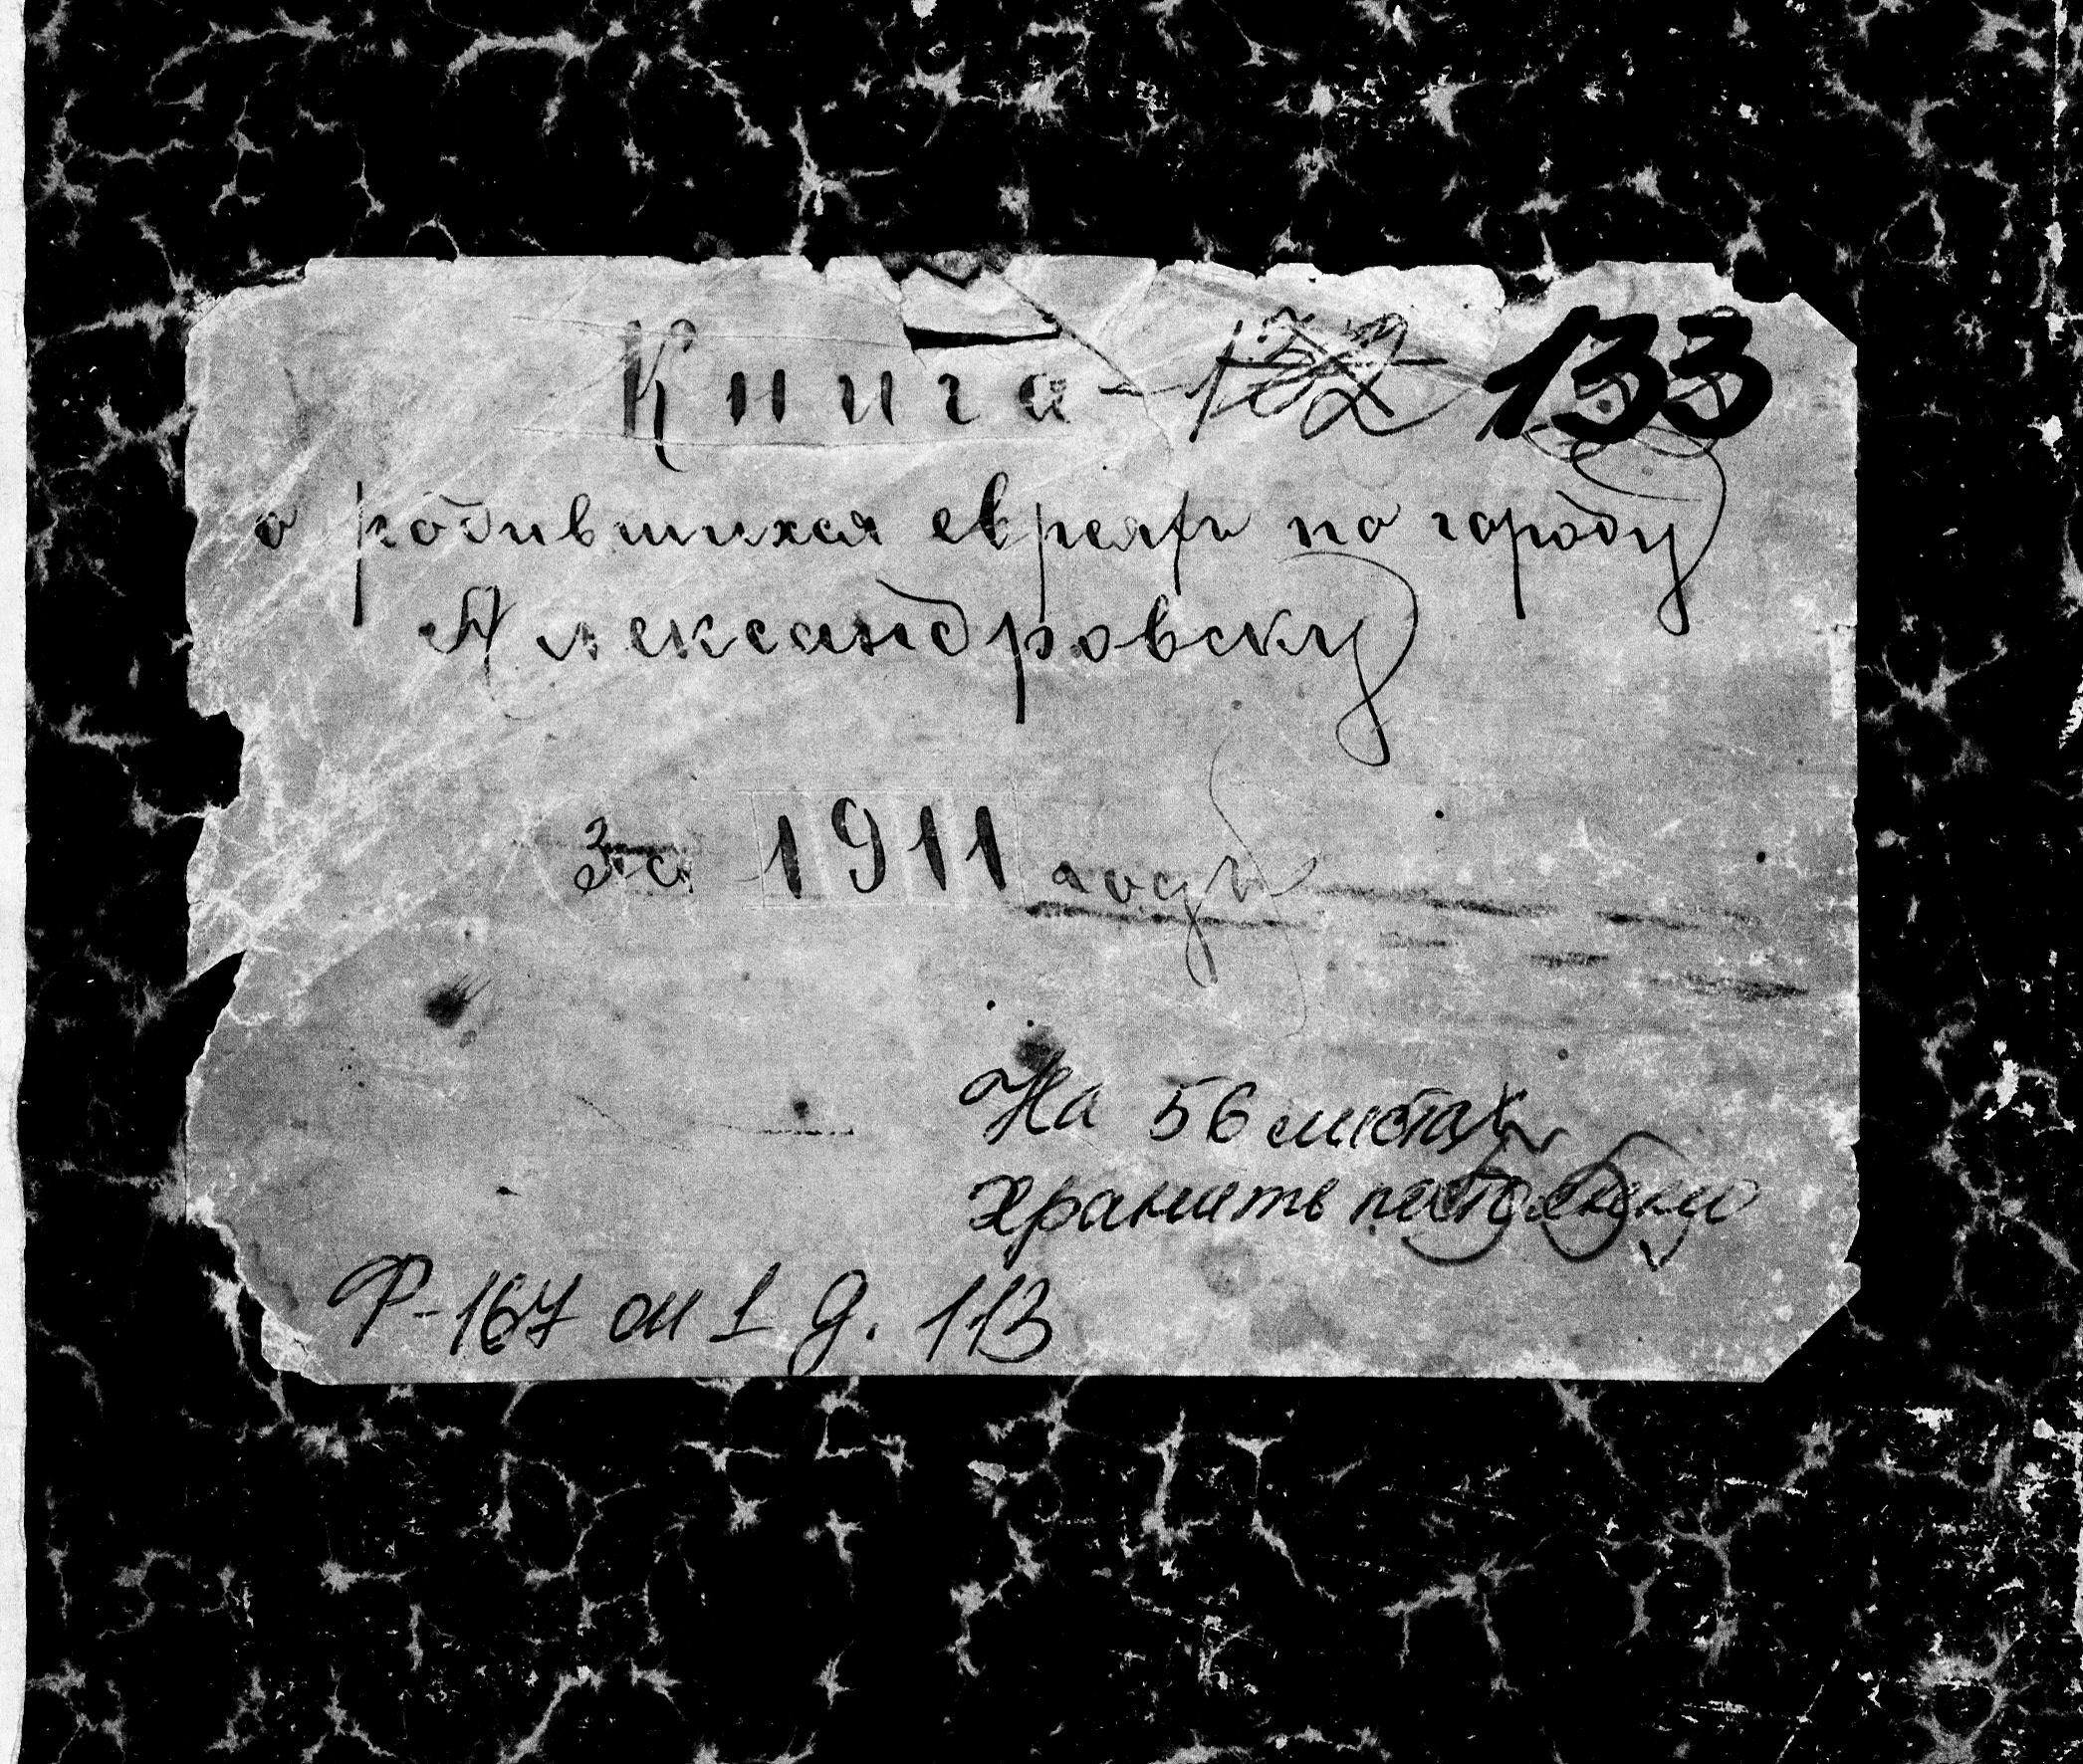 Книга - 133
о родившихся евреяхъ по городу
Александровску
За 1911 годъ
На 56 листах
хранить постоянно
Р-167 оп 1 д. 113